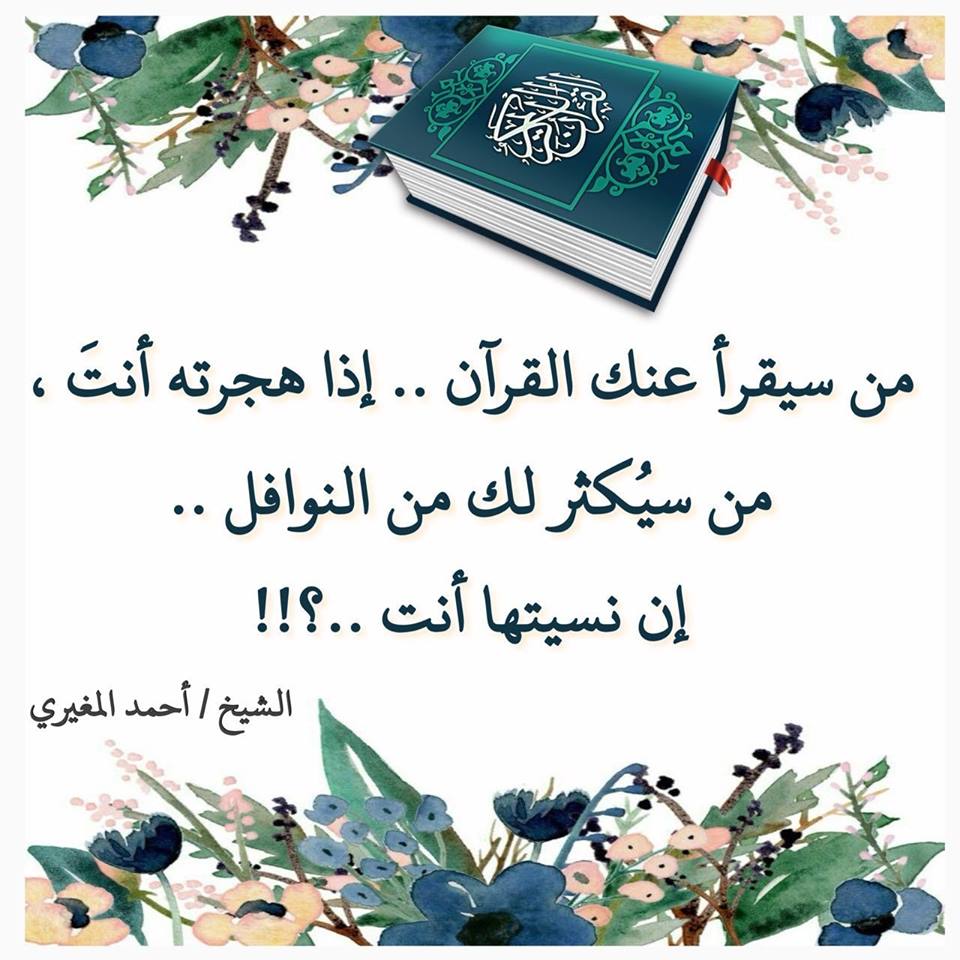 القرآن الكريم
من سيقرأ عنك القرآن .. إذا هجرته أنتَ ،
من سيُكثر لك من النوافل ..
إن نسيتها أنت ..؟!!
الشيخ / أحمد المغيري